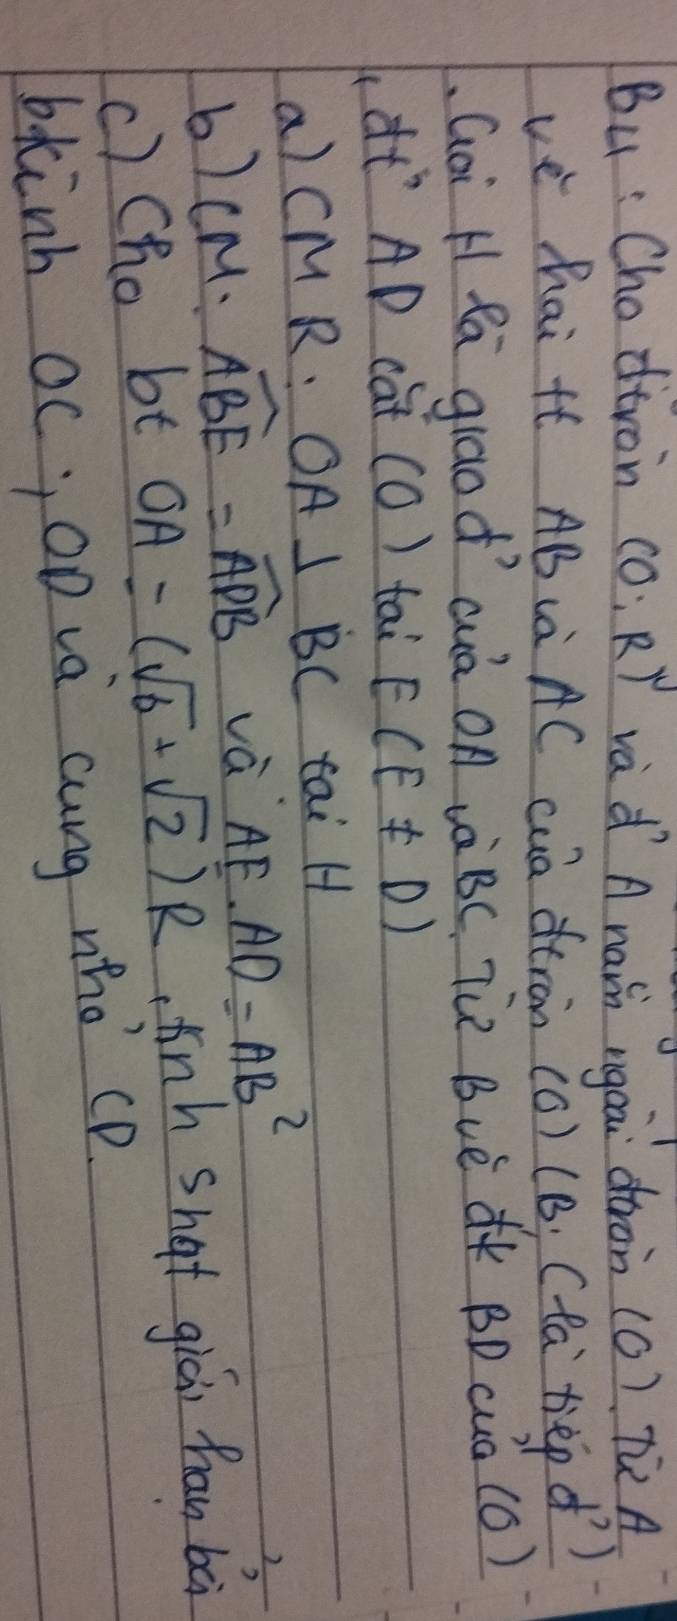 B4: Cho đtròn (O; R) và đ' A nằm ngoài đtròn (O). Từ A
vẽ hai tt AB và AC của đtròn (O) (B, C là tiếp đ')
. Gọi H là giao đ' của OA và BC. Từ B vẽ đk BD của (O)
, đt' AD cắt (O) tại E (E ≠ D)
a) CMR: OA ⊥ BC tại H
b) CM. ABE = ADB và AE. AD = AB²
c) Cho bt OA = (√6 + √2) R, tính shqt giới hạn bởi
bkính OC; OD và cung nhỏ CD.